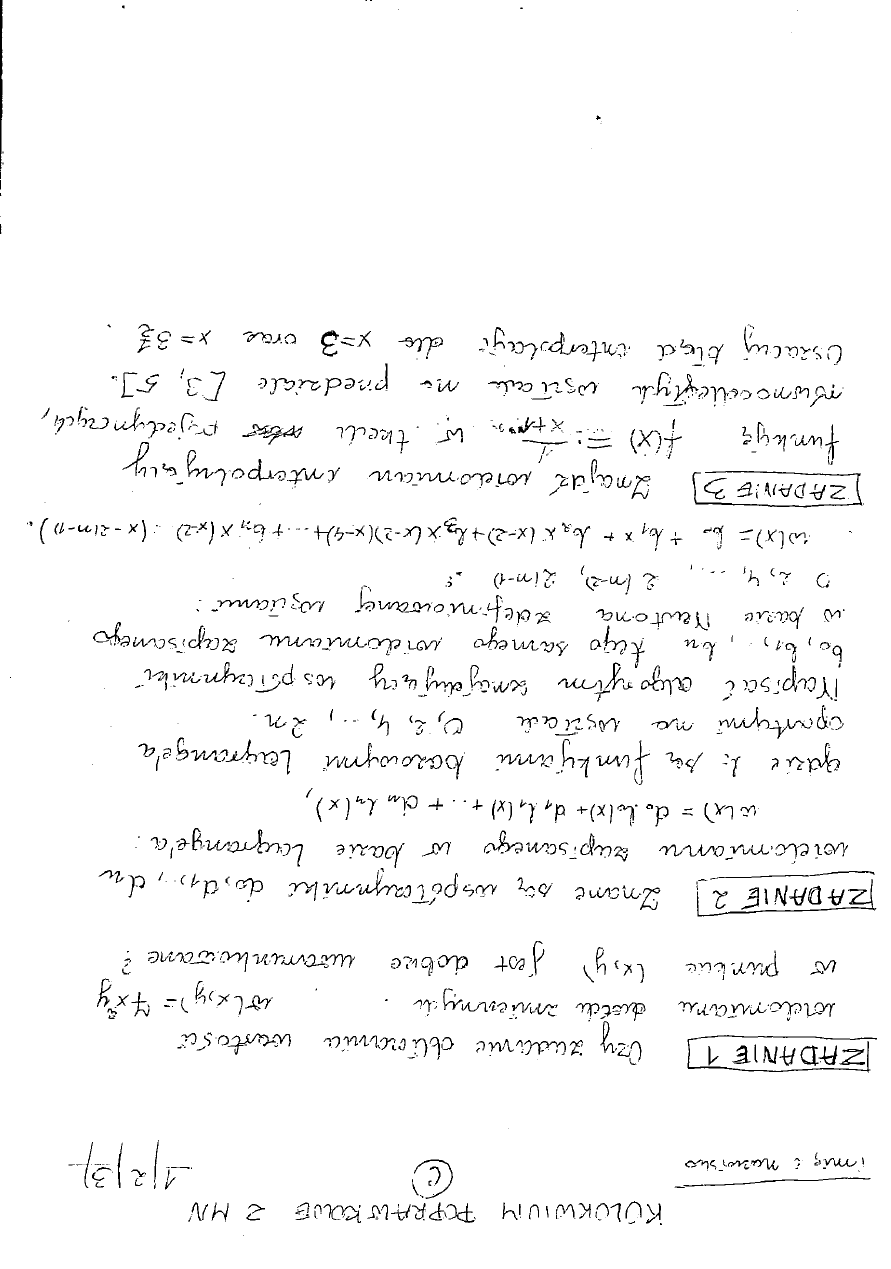 KOLOKWIUM POPRAWKOWE Z MN
imię i nazwisko C 1/2/3/
ZADANIE 1 Czy zadanie obliczania wartości
wielomianu dwóch zmiennych w(x,y) = 7x²y
w punkcie (x,y) jest dobrze uwarunkowane?
ZADANIE 2 Znane są współczynniki d0, d1, ..., dn
wielomianu zapisanego w bazie Lagrange'a:
w(x) = d0 l0(x) + d1 l1(x) + ... + dn ln(x),
gdzie li są funkcjami bazowymi Lagrange'a
opartymi na węzłach 0, 2, 4, ..., 2n.
Napisać algorytm znajdujący współczynniki
b0, b1, ..., bn tego samego wielomianu zapisanego
w bazie Newtona zdefiniowanej węzłami:
0, 2, 4, ..., 2(n-2), 2(n-1) :
w(x) = b0 + b1 x + b2 x (x-2) + b3 x (x-2)(x-4) + ... + bn x (x-2) ... (x-2(n-1)).
ZADANIE 3 Znajdź wielomian interpolujący
funkcję f(x) = 1/x+1 w trzech pojedynczych,
równoodległych węzłach na przedziale [3, 5].
Oszacuj błąd interpolacji dla x=3 oraz x=3½